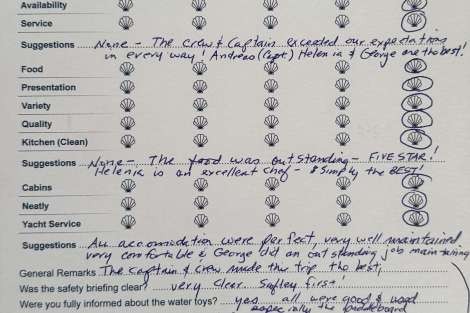 Availability
Service
Suggestions None - The crew & Captain exceeded our expectations
in every way! Andreas (Capt.) Helenia & George are the best!
Food
Presentation
Variety
Quality
Kitchen (Clean)
Suggestions None - The food was outstanding - FIVE STAR!
Helenia is an excellent chef - & simply the BEST!
Cabins
Neatly
Yacht Service
Suggestions All accomodation were perfect, very well maintained,
very comfortable & George did an outstanding job maintaining
General Remarks The captain & crew made this trip the best,
Was the safety briefing clear? very clear. Safley first!
Were you fully informed about the water toys? yes all were good & used
especially the paddleboard